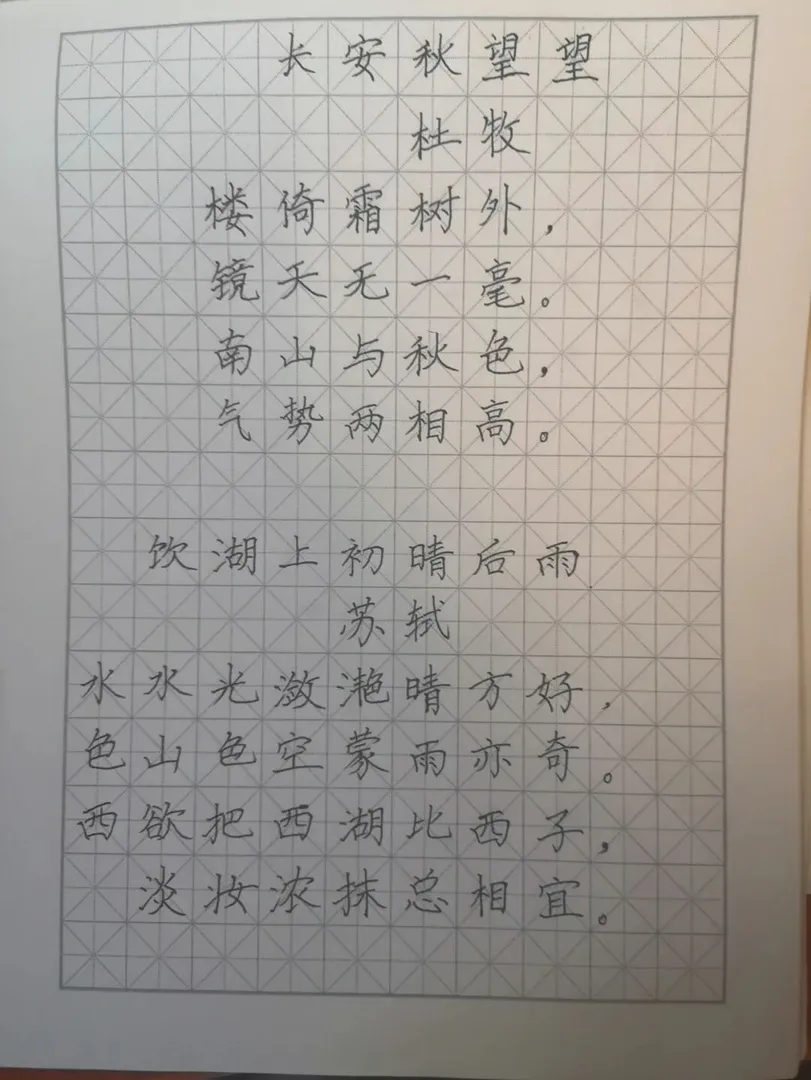 长安秋望望
杜牧
楼倚霜树外，
镜天无一毫。
南山与秋色，
气势两相高。
饮湖上初晴后雨
苏轼
水水光潋滟晴方好，
色山色空蒙雨亦奇。
西欲把西湖比西子，
淡妆浓抹总相宜。